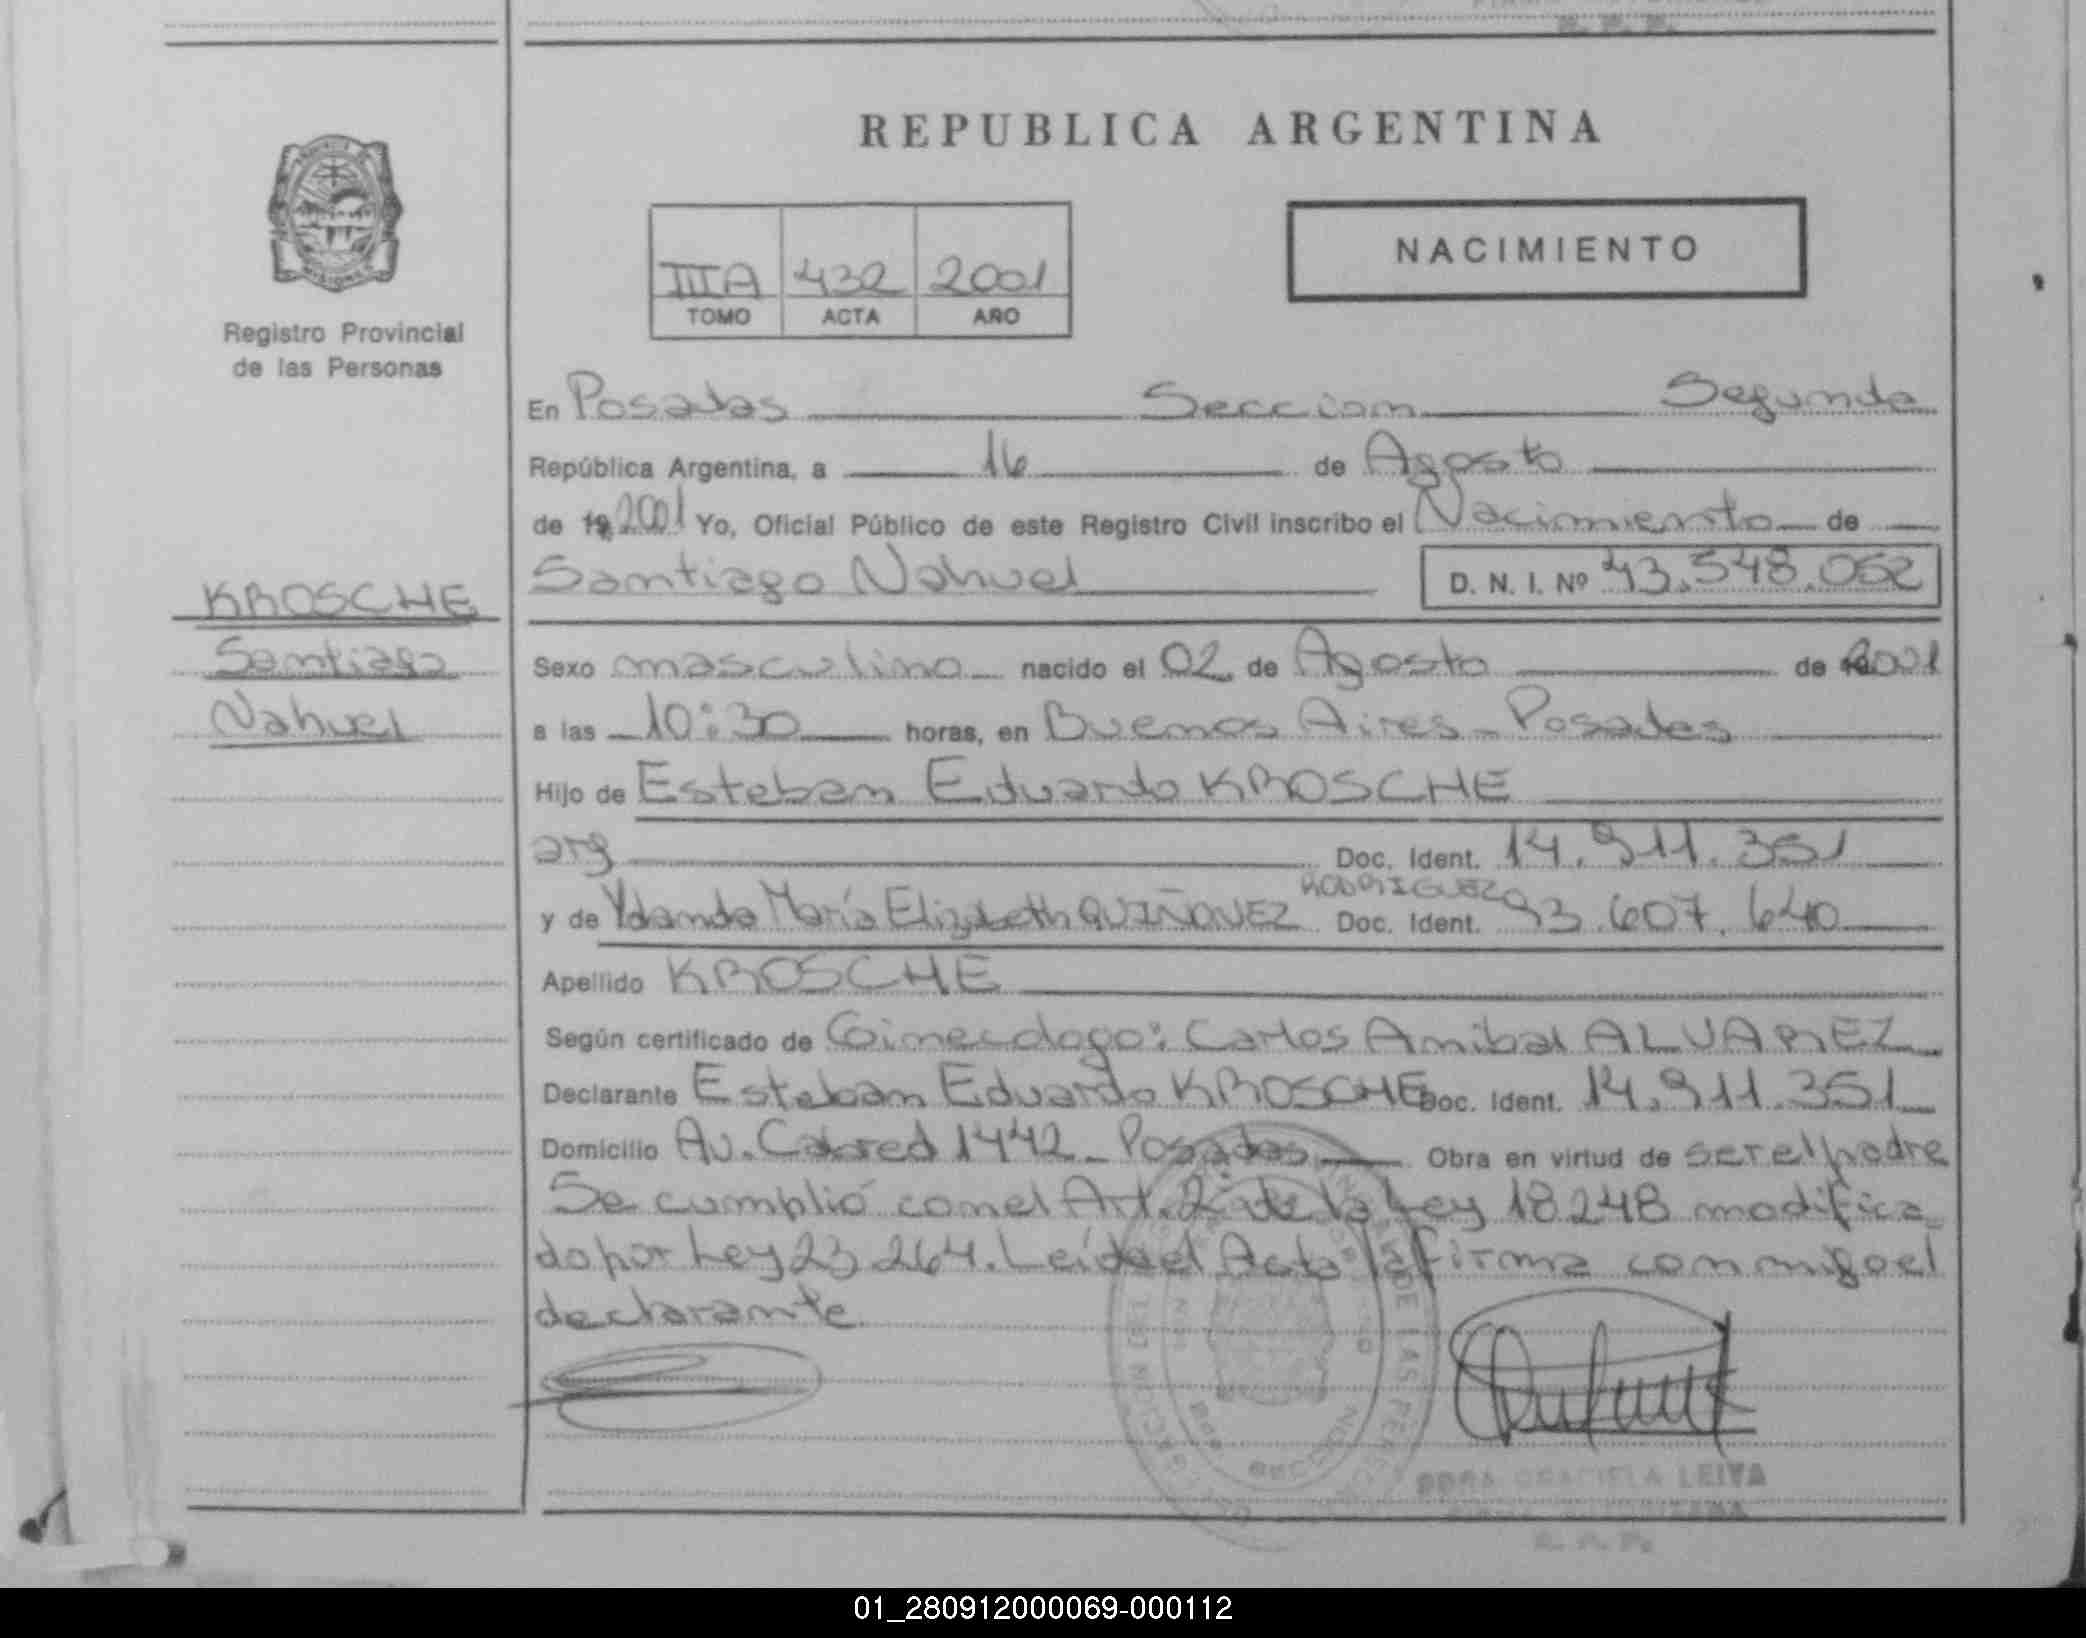 REPUBLICA ARGENTINA
NACIMIENTO
IIIA 432 2001
TOMO ACTA AÑO
Registro Provincial
de las Personas
En Posadas Seccion Segunda
República Argentina, a 16 de Agosto
de 19 2001 Yo, Oficial Público de este Registro Civil inscribo el Nacimiento de
Santiago Nahuel D. N. I. Nº 43.548.052
KROSCHE
Santiago
Nahuel
Sexo masculino nacido el 02 de Agosto de 2001
a las 10:30 horas, en Buenos Aires - Posadas
Hijo de Esteban Eduardo KROSCHE
arg Doc. Ident. 14.911.351
RODRIGUEZ
y de Ydanda María Elizabeth QUIÑONEZ Doc. Ident. 93.607.640
Apellido KROSCHE
Según certificado de Ginecologo: Carlos Anibal ALVAREZ
Declarante Esteban Eduardo KROSCHE Doc. Ident. 14.911.351
Domicilio Av. Cabred 1442 - Posadas Obra en virtud de ser el padre
Se cumplió con el Art. 2 de la Ley 18248 modifica
do por Ley 23264. Leída el Acta la firma conmigo el
declarante
GRACIELA LEIVA
01_280912000069-000112